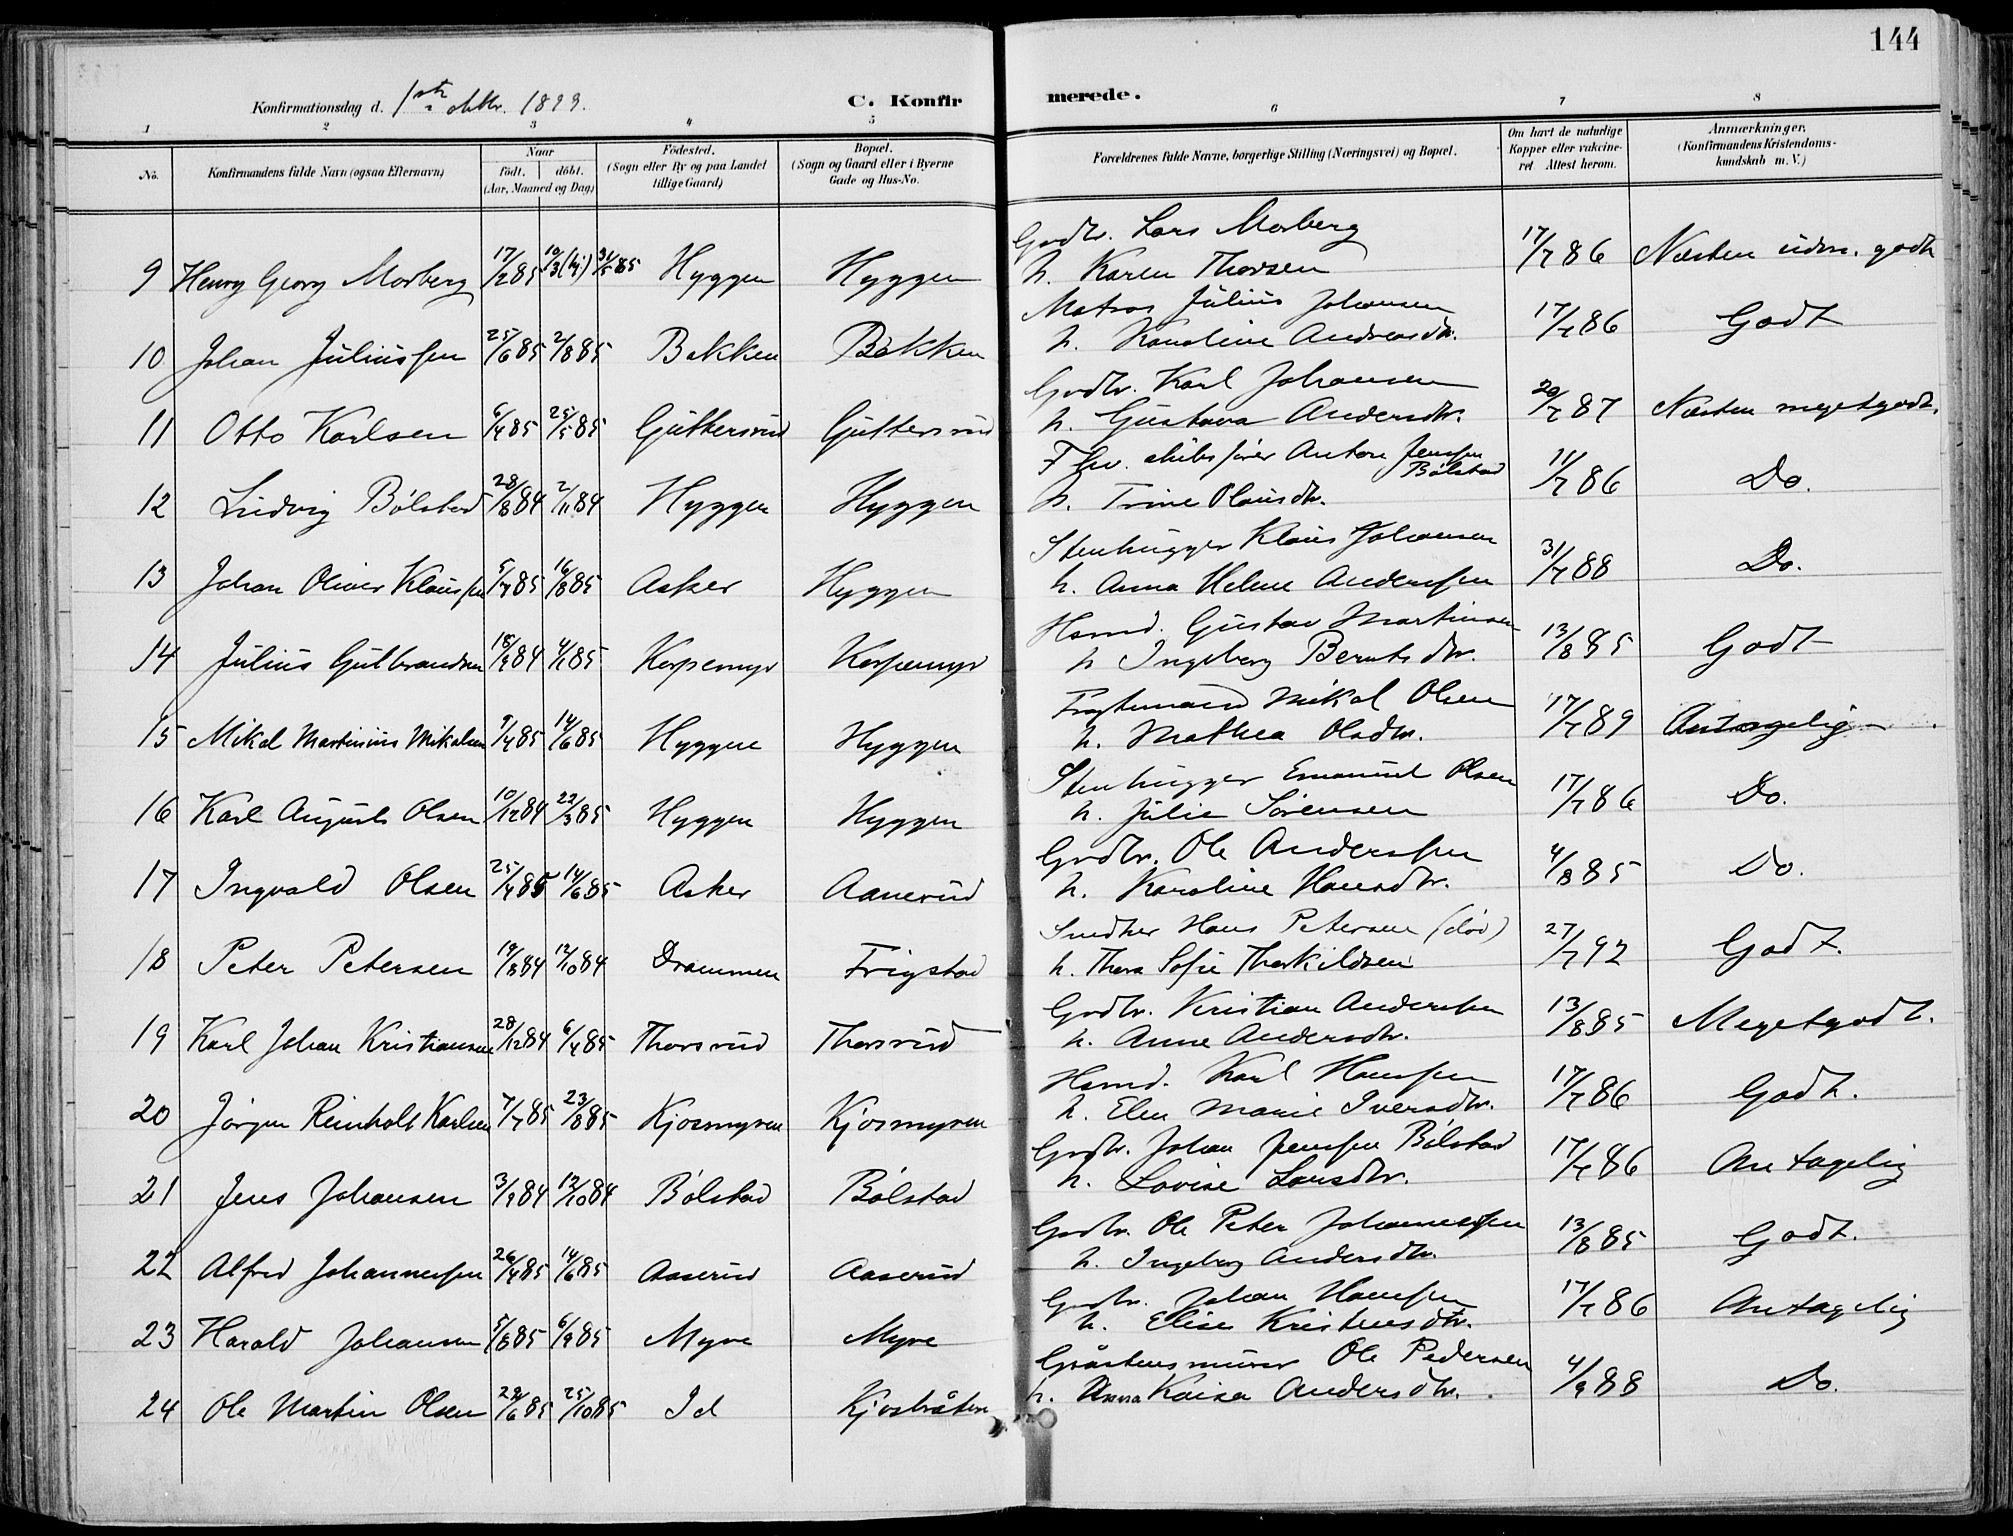 144
Konfirmationsdag d. 1ste oktbr. 1899.
C. Konfir merede.
1 2 3 4 5 6 7 8
No.
Konfirmandens fulde Navn (ogsaa Efternavn)
Naar
födt. döbt.
(Aar, Maaned og Dag)
Födested.
(Sogn eller By og paa Landet
tillige Gaard)
Bopæl.
(Sogn og Gaard eller i Byerne
Gade og Hus-No.
Forældrenes fulde Navne, borgerlige Stilling (Næringsvei) og Bopæl.
Om havt de naturlige
Kopper eller vakcine-
ret. Attest herom.
Anmærkninger.
(Konfirmandens Kristendoms-
kundskab m. V.)
Gbdbr. Lars Morberg
9 Henry Georg Morberg 17/2 85 10/3 (hj) 31/5 85 Hyggen Hyggen h. Karen Thorsen 17/7 86 Næsten udm. godt
Matros Julius Johansen
10 Johan Juliussen 25/6 85 2/8 85 Bakken Bakken h. Karoline Andreasdtr. 17/7 86 Godt
Gbdbr. Karl Johansen
11 Otto Karlsen 6/4 85 25/5 85 Guttersrud Guttersrud h. Gustava Andersdtr. 20/7 87 Næsten megetgodt.
Fhv. skibsfører Anton Jenssen Bølstad
12 Ludvig Bølstad 28/8 84 2/11 84 Hyggen Hyggen h. Trine Olausdtr. 11/7 86 Do.
Stenhugger Klaus Johansen
13 Johan Oliver Klaussen 5/7 85 16/8 85 Asker Hyggen h. Anna Helene Anderssen 31/7 88 Do.
Husmd. Gustav Martinsen
14 Julius Gulbrandsen 18/9 84 4/1 85 Korpemyr Korpemyr h. Ingeborg Berntsdtr. 13/8 85 Godt
Fragtemand Mikal Olsen
15 Mikal Martinius Mikalsen 9/4 85 14/6 85 Hyggen Hyggen h. Mathea Olsdtr. 17/7 89 Antagelig
Stenhugger Emanuel Olsen
16 Karl August Olsen 10/12 84 22/3 85 Hyggen Hyggen h. Julie Sørensen 17/7 86 Do.
Gbdbr. Ole Anderssen
17 Ingvald Olsen 25/4 85 14/6 85 Asker Aanerud h. Karoline Hansdtr. 4/8 85 Do.
Snedker Hans Petersen (død)
18 Peter Petersen 19/8 84 12/10 84 Drammen Frigstad h. Thora Sofie Therkildsen 27/7 92 Godt.
Gbdbr. Kristian Anderssen
19 Karl Johan Kristiansen 28/12 84 6/4 85 Thorsrud Thorsrud h. Anne Andersdtr. 13/8 85 Megetgodt.
Husmd. Karl Hanssen
20 Jørgen Reinholt Karlsen 7/7 85 23/8 85 Kjosmyren Kjosmyren h. Elen Marie Iversdtr. 17/7 86 Godt.
Gbdbr. Johan Jenssen Bølstad
21 Jens Johansen 3/9 84 12/10 84 Bølstad Bølstad h. Lovise Larsdtr. 17/7 86 Antagelig
Gbdbr. Ole Peter Johannessen
22 Alfred Johannessen 26/4 85 14/6 85 Aaserud Aaserud h. Ingeborg Andersdtr. 13/8 85 Godt.
Gbdbr. Johan Hanssen
23 Harald Johansen 5/8 85 6/9 85 Myre Myre h. Elise Kristensdtr. 17/7 86 Antagelig
Gråstensmurer Ole Pedersen
24 Ole Martin Olsen 29/6 85 25/10 85 Id Kjosbråten h. Anna Kaisa Andersdtr. 4/9 88 Do.